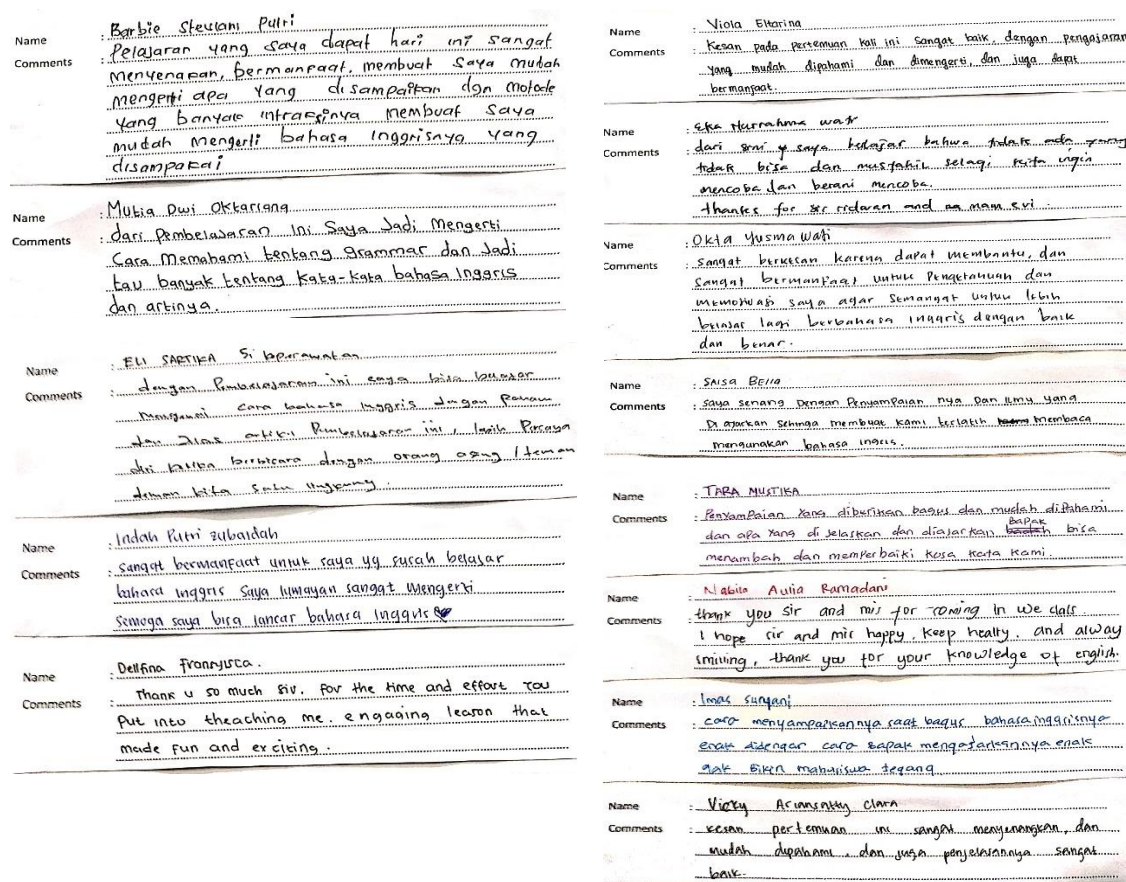 Name : Barbie Steviani Putri
Comments : Pelajaran yang saya dapat hari ini sangat
menyenagan, bermanfaat, membuat saya mudah
mengerti apa yang disampaikan dgn motode
yang banyak intraksinya membuat saya
mudah mengerti bahasa inggrisnya yang
disampakai
Name : Mutia Dwi Oktariana
Comments : dari Pembelajaran Ini Saya Jadi Mengerti
Cara Memahami tentang grammar dan Jadi
tau banyak tentang Kata-Kata bahasa Inggris
dan artinya.
Name : ELI SARTIKA S1 keperawatan
Comments : dengan Pembelajaran ini saya bisa belajar
mengenai cara bahasa Inggris dengan Paham
dan Jelas artiky Pembelajaran ini, lebih Percaya
diri ketika berbicara dengan orang asing / teman
teman kita satu lingkung.
Name : Indah Putri zubaidah
Comments : sangat bermanfaat untuk saya yg susah belajar
bahasa inggris saya lumayan sangat mengerti
semoga saya bisa lancar bahasa inggris
Name : Dellfina Fransysca.
Comments : Thank u so much sir. for the time and effort you
Put into theaching me. engaging leason that
made fun and exciting.
Name : Viola Eltarina
Comments : Kesan pada pertemuan kali ini sangat baik, dengan pengajaran
yang mudah dipahami dan dimengerti, dan juga dapat
bermanfaat.
Name : Eka Nurrahma wati
Comments : dari sini saya belajar bahwa tidak ada yang
tidak bisa dan mustahil selagi kita ingin
mencoba dan berani mencoba.
thankes for sir ridavan and mam evi
Name : Okta Yusmawati
Comments : sangat berkesan karena dapat membantu, dan
sangat bermanfaat untuk Pengetahuan dan
memotivasi saya agar semangat untuk lebih
belajar lagi berbahasa inggris dengan baik
dan benar.
Name : Salsa Bella
Comments : saya senang Dengan Penyampaian nya Dan Ilmu yang
Di ajarkan Sehinga membuat kami terlatih membaca
mengunakan bahasa ingris.
Name : TARA MUSTIKA
Comments : Penyampaian Yang diberikan bagus dan mudah dipahami
dan apa Yang di jelaskan dan diajarkan BaPak bisa
menambah dan memperbaiki kosa kata kami.
Name : Nabila Aulia Ramadani
Comments : thank you sir and mis for coming in we class
I hope sir and mis happy, keep healty. and alway
smiling, thank you for your knowledge of english.
Name : Imas suryani
Comments : cara menyampaikannya saat bagus bahasa inggrisnya
enak didengar cara bapak mengajarkannya enak
gak bikin mahasiswa tegang
Name : Vicky Ariansakty Clara
Comments : kesan pertemuan ini sangat menyenangkan, dan
mudah dipahami, dan juga penjelasannya sangat
baik.